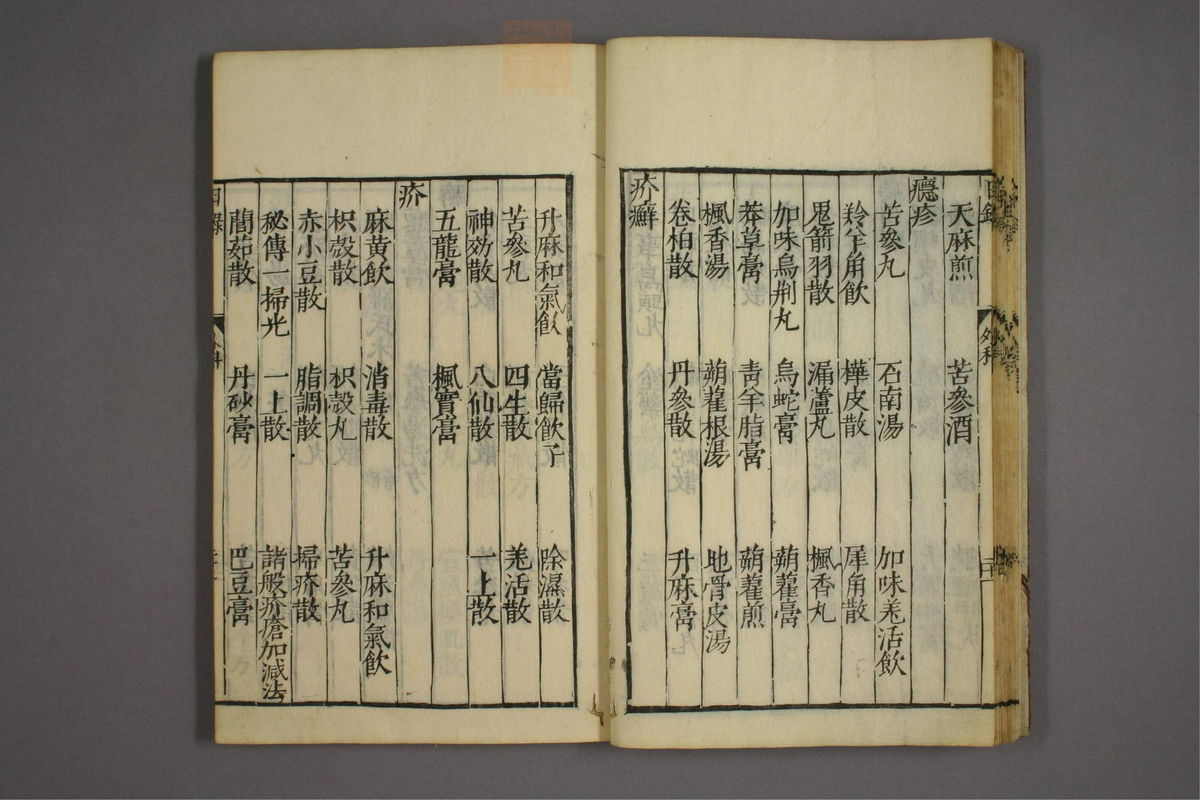 目錄 外科 二十一
天麻煎 苦參酒
癮疹
苦參丸 石南湯 加味羗活飲
羚羊角飲 樺皮散 犀角散
鬼箭羽散 漏蘆丸 楓香丸
加味烏荆丸 烏蛇膏 蒴藋膏
莽草膏 靑羊脂膏 蒴藋煎
楓香湯 蒴藋根湯 地骨皮湯
卷柏散 丹參散 升麻膏
疥癬
升麻和氣飲 當歸飲子 除濕散
苦參丸 四生散 羗活散
神効散 八仙散 一上散
五龍膏 楓實膏
疥
麻黄飲 消毒散 升麻和氣飲
枳殼散 枳殼丸 苦參丸
赤小豆散 脂調散 掃疥散
秘傳一掃光 一上散 諸般疥瘡加減法
藺茹散 丹砂膏 巴豆膏
目錄 外科